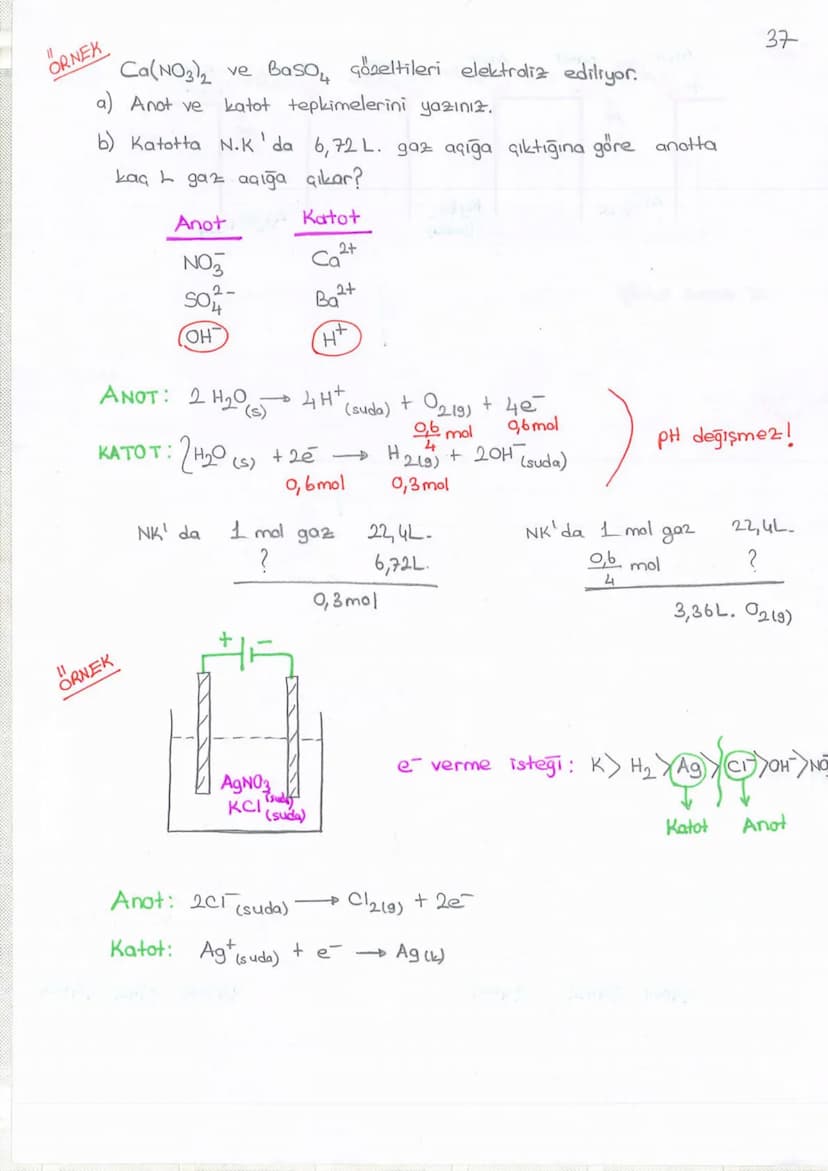 37
ÖRNEK
Ca(NO₃)₂ ve BaSO₄ çözeltileri elektroliz ediliyor.
a) Anot ve katot tepkimelerini yazınız.
b) Katotta N.K'da 6,72 L. gaz açığa çıktığına göre anotta
kaç L gaz açığa çıkar?
Anot Katot
NO₃⁻ Ca²⁺
SO₄²⁻ Ba²⁺
OH⁻ H⁺
ANOT: 2 H₂O(s) → 4H⁺(suda) + O₂(g) + 4e⁻
0,6/4 mol 0,6mol
KATOT: 2H₂O(s) + 2e⁻ → H₂(g) + 2OH⁻(suda)
0,6mol 0,3mol
pH değişmez!
NK' da 1 mol gaz 22,4L.
? 6,72L.
0,3mol
NK'da 1 mol gaz 22,4L.
0,6/4 mol ?
3,36L. O₂(g)
ÖRNEK
+ -
AgNO₃(suda)
KCl(suda)
e⁻ verme isteği: K> H₂>Ag>Cl⁻>OH⁻>NO₃⁻
Katot Anot
Anot: 2Cl⁻(suda) → Cl₂(g) + 2e⁻
Katot: Ag⁺(suda) + e⁻ → Ag(k)